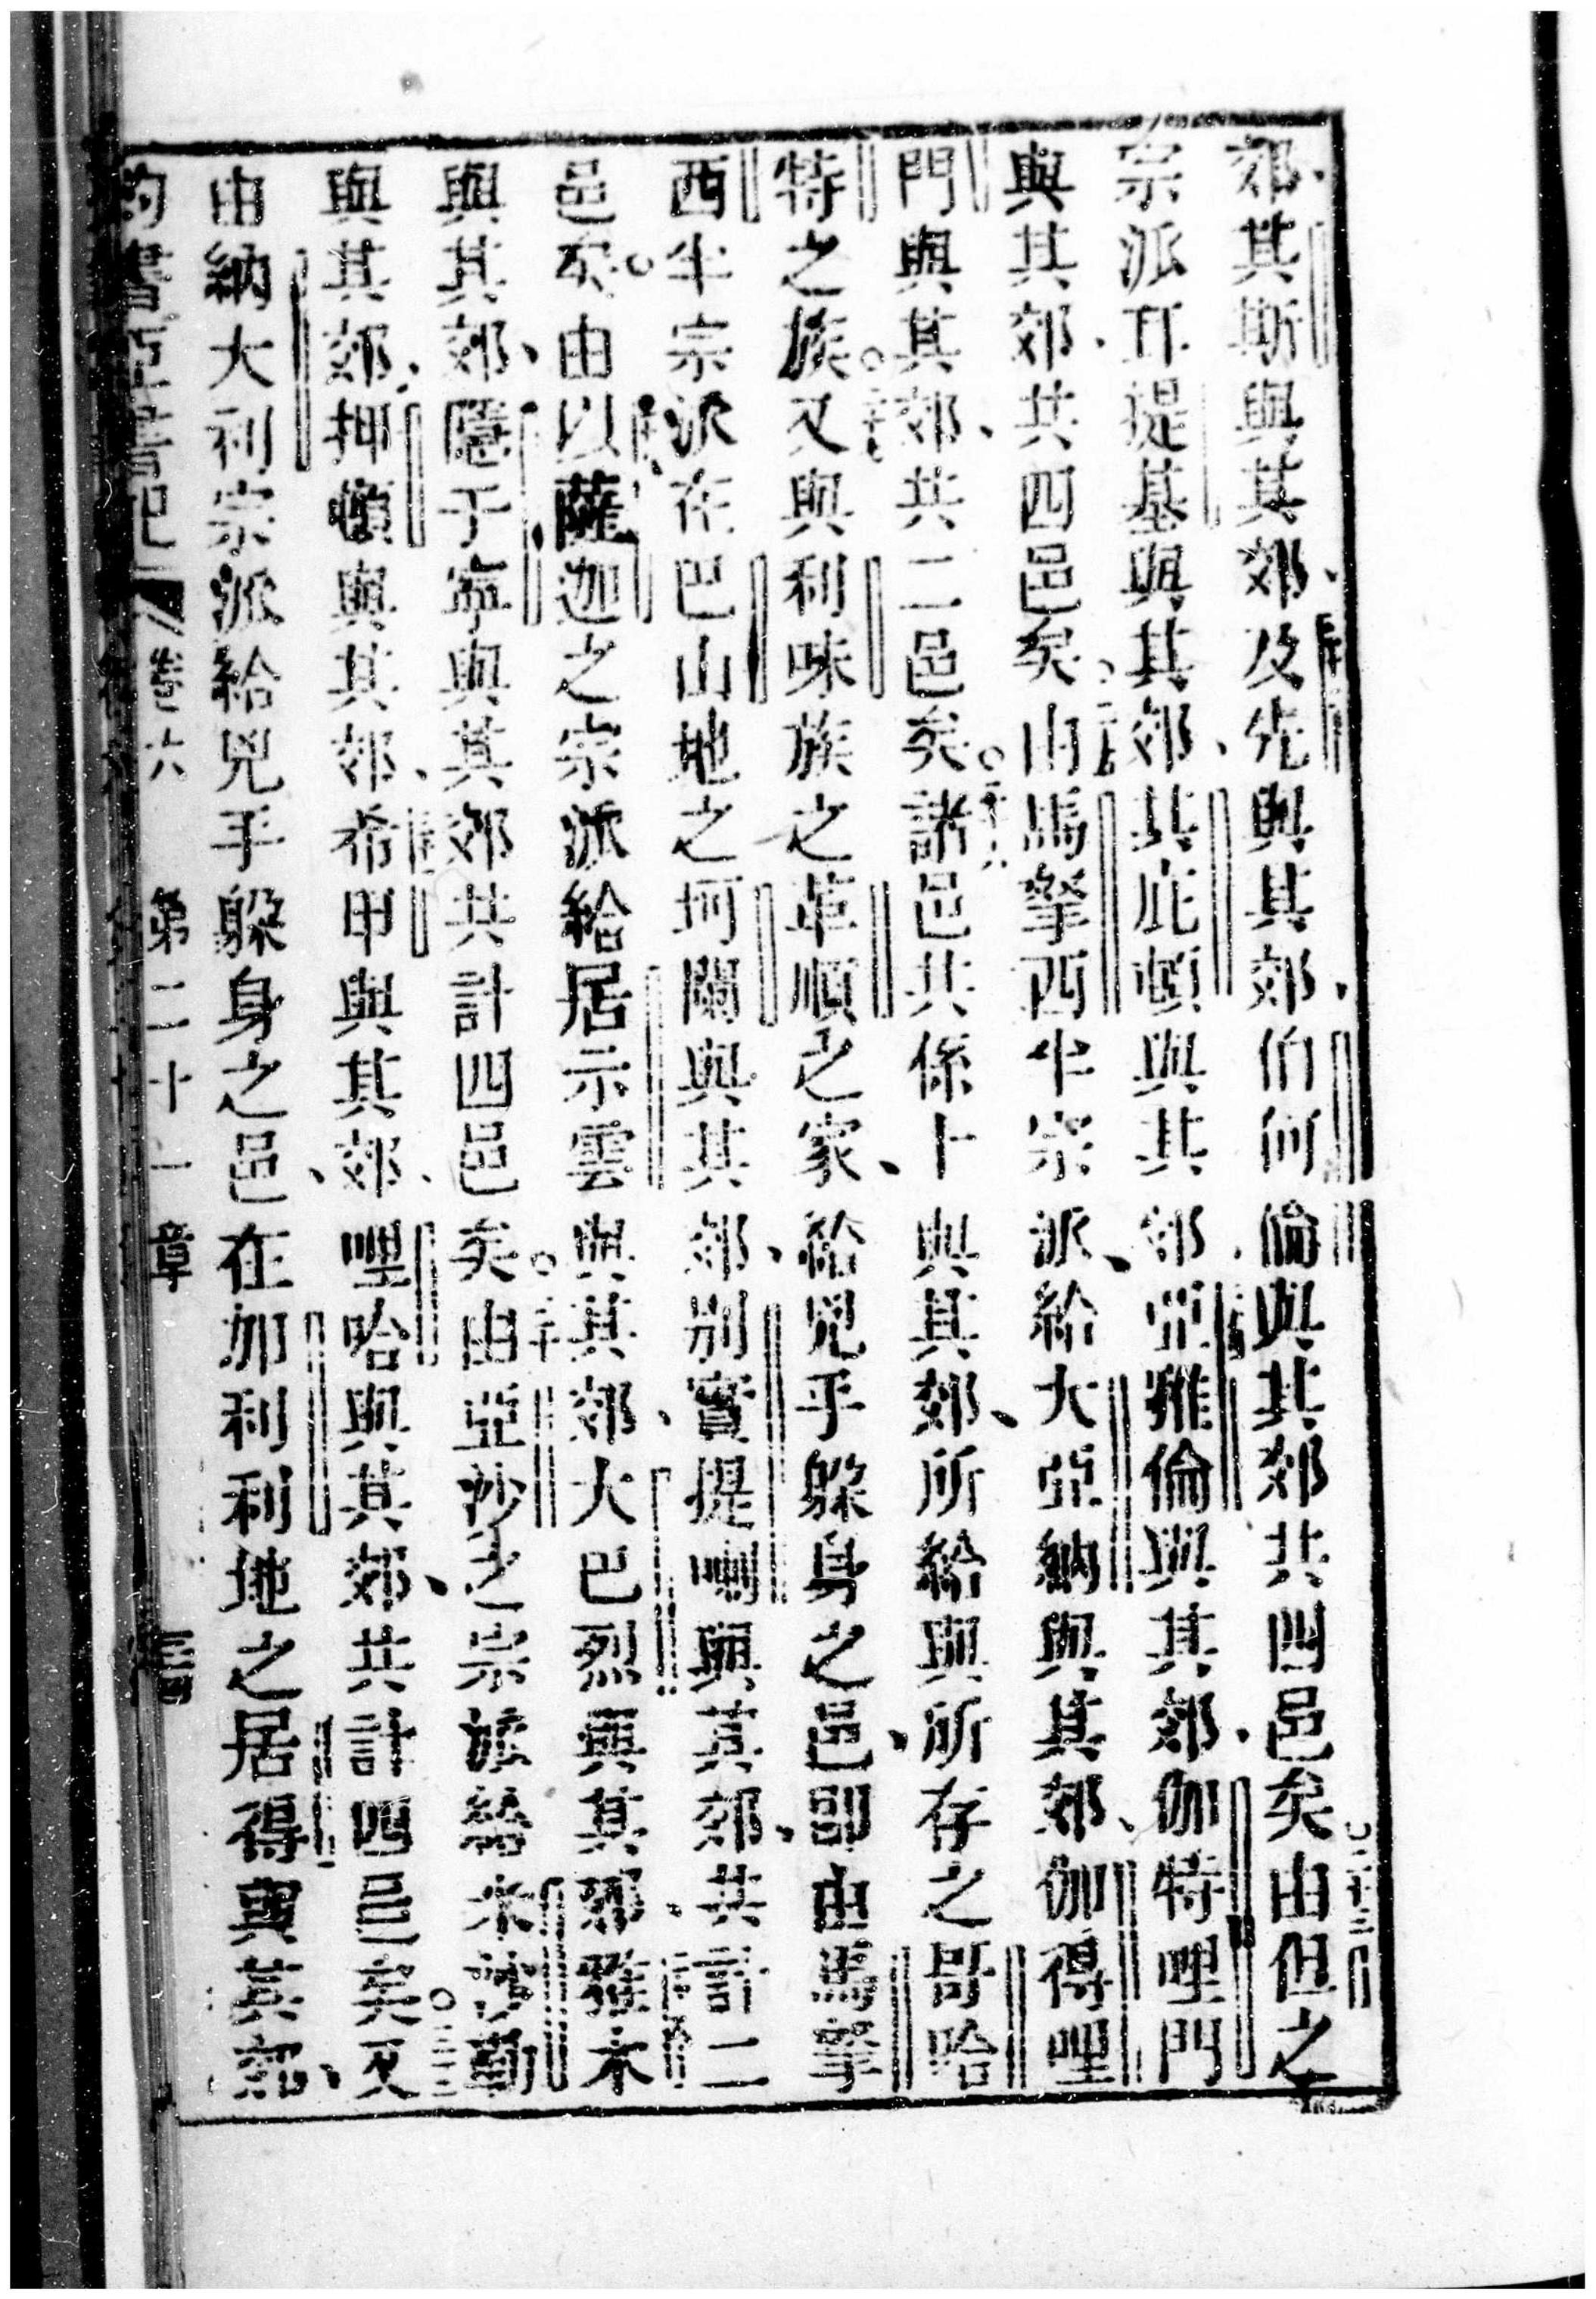 郊、其斯與其郊、及先與其郊、伯何倫與其郊共四邑矣。由但之
宗派耳提基與其郊、其庇頓與其郊、亞雅倫與其郊、伽特哩門
與其郊、共四邑矣。由馬拏西半宗派、給大亞納與其郊、伽得哩
門與其郊、共二邑矣。諸邑共係十與其郊、所給與所存之哥哈
特之族。又與利味族之革順之家、給兇手躱身之邑、卽由馬拏
西半宗派在巴山地之坷闌與其郊、別實提喇與其郊、共計二
邑矣。由以薩迦之宗派給居示雲與其郊、大巴烈與其郊、耀末
與其郊、隱于寧與其郊共計四邑矣。由亞沙之宗派給米沙勒
與其郊、押頓與其郊、希甲與其郊、哩哈與其郊、共計四邑矣。又
由納大利宗派給兇手躲身之邑、在加利利地之居得與其郊、
約書亞書記 卷六 第二十一章